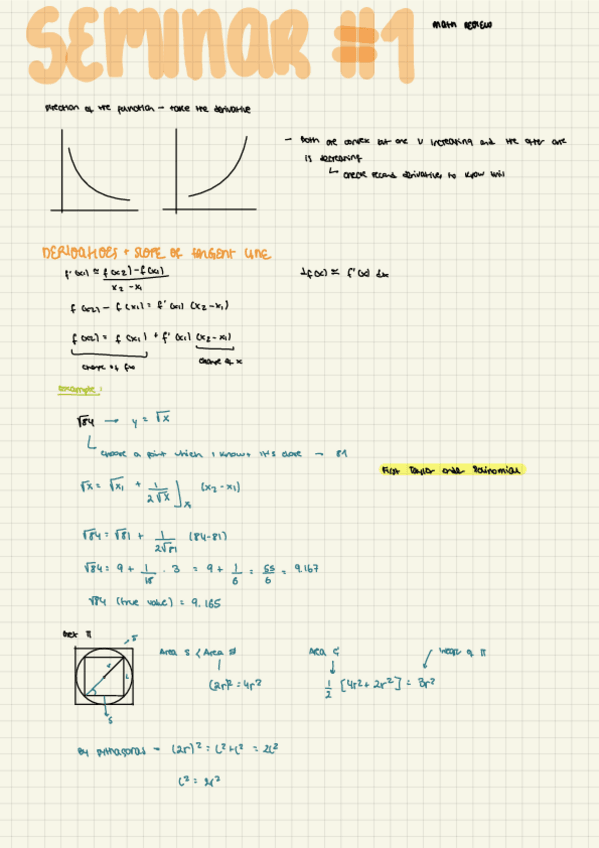 SEMINAR #1
MATH REVIEW
Direction of the function → take the derivative
- Both are convex but one is increasing and the other one
is decreasing
↳ check second derivative to know this
DERIVATIVES + SLOPE OF TANGENT LINE
f'(x1) ≈ f(x2) - f(x1) / x2 - x1
Δf(x) ≈ f'(x) Δx
f(x2) - f(x1) = f'(x1) (x2 - x1)
f(x2) = f(x1) + f'(x1) (x2 - x1)
change of f(x)
change of x
example:
√84 → y = √x
choose a point which I know + it's close → 81
First Taylor order Polinomial
√x = √x1 + 1/2√x ]x1 (x2 - x1)
√84 = √81 + 1/2√81 (84-81)
√84 = 9 + 1/18 · 3 = 9 + 1/6 = 55/6 = 9.167
√84 (true value) = 9.165
π
S
Area S < Area
(2r)² = 4r²
Area
1/2 [4r² + 2r²] = 3r²
of π
r
L
S
By pythagoras → (2r)² = L² + L² = 2L²
L² = 2r²